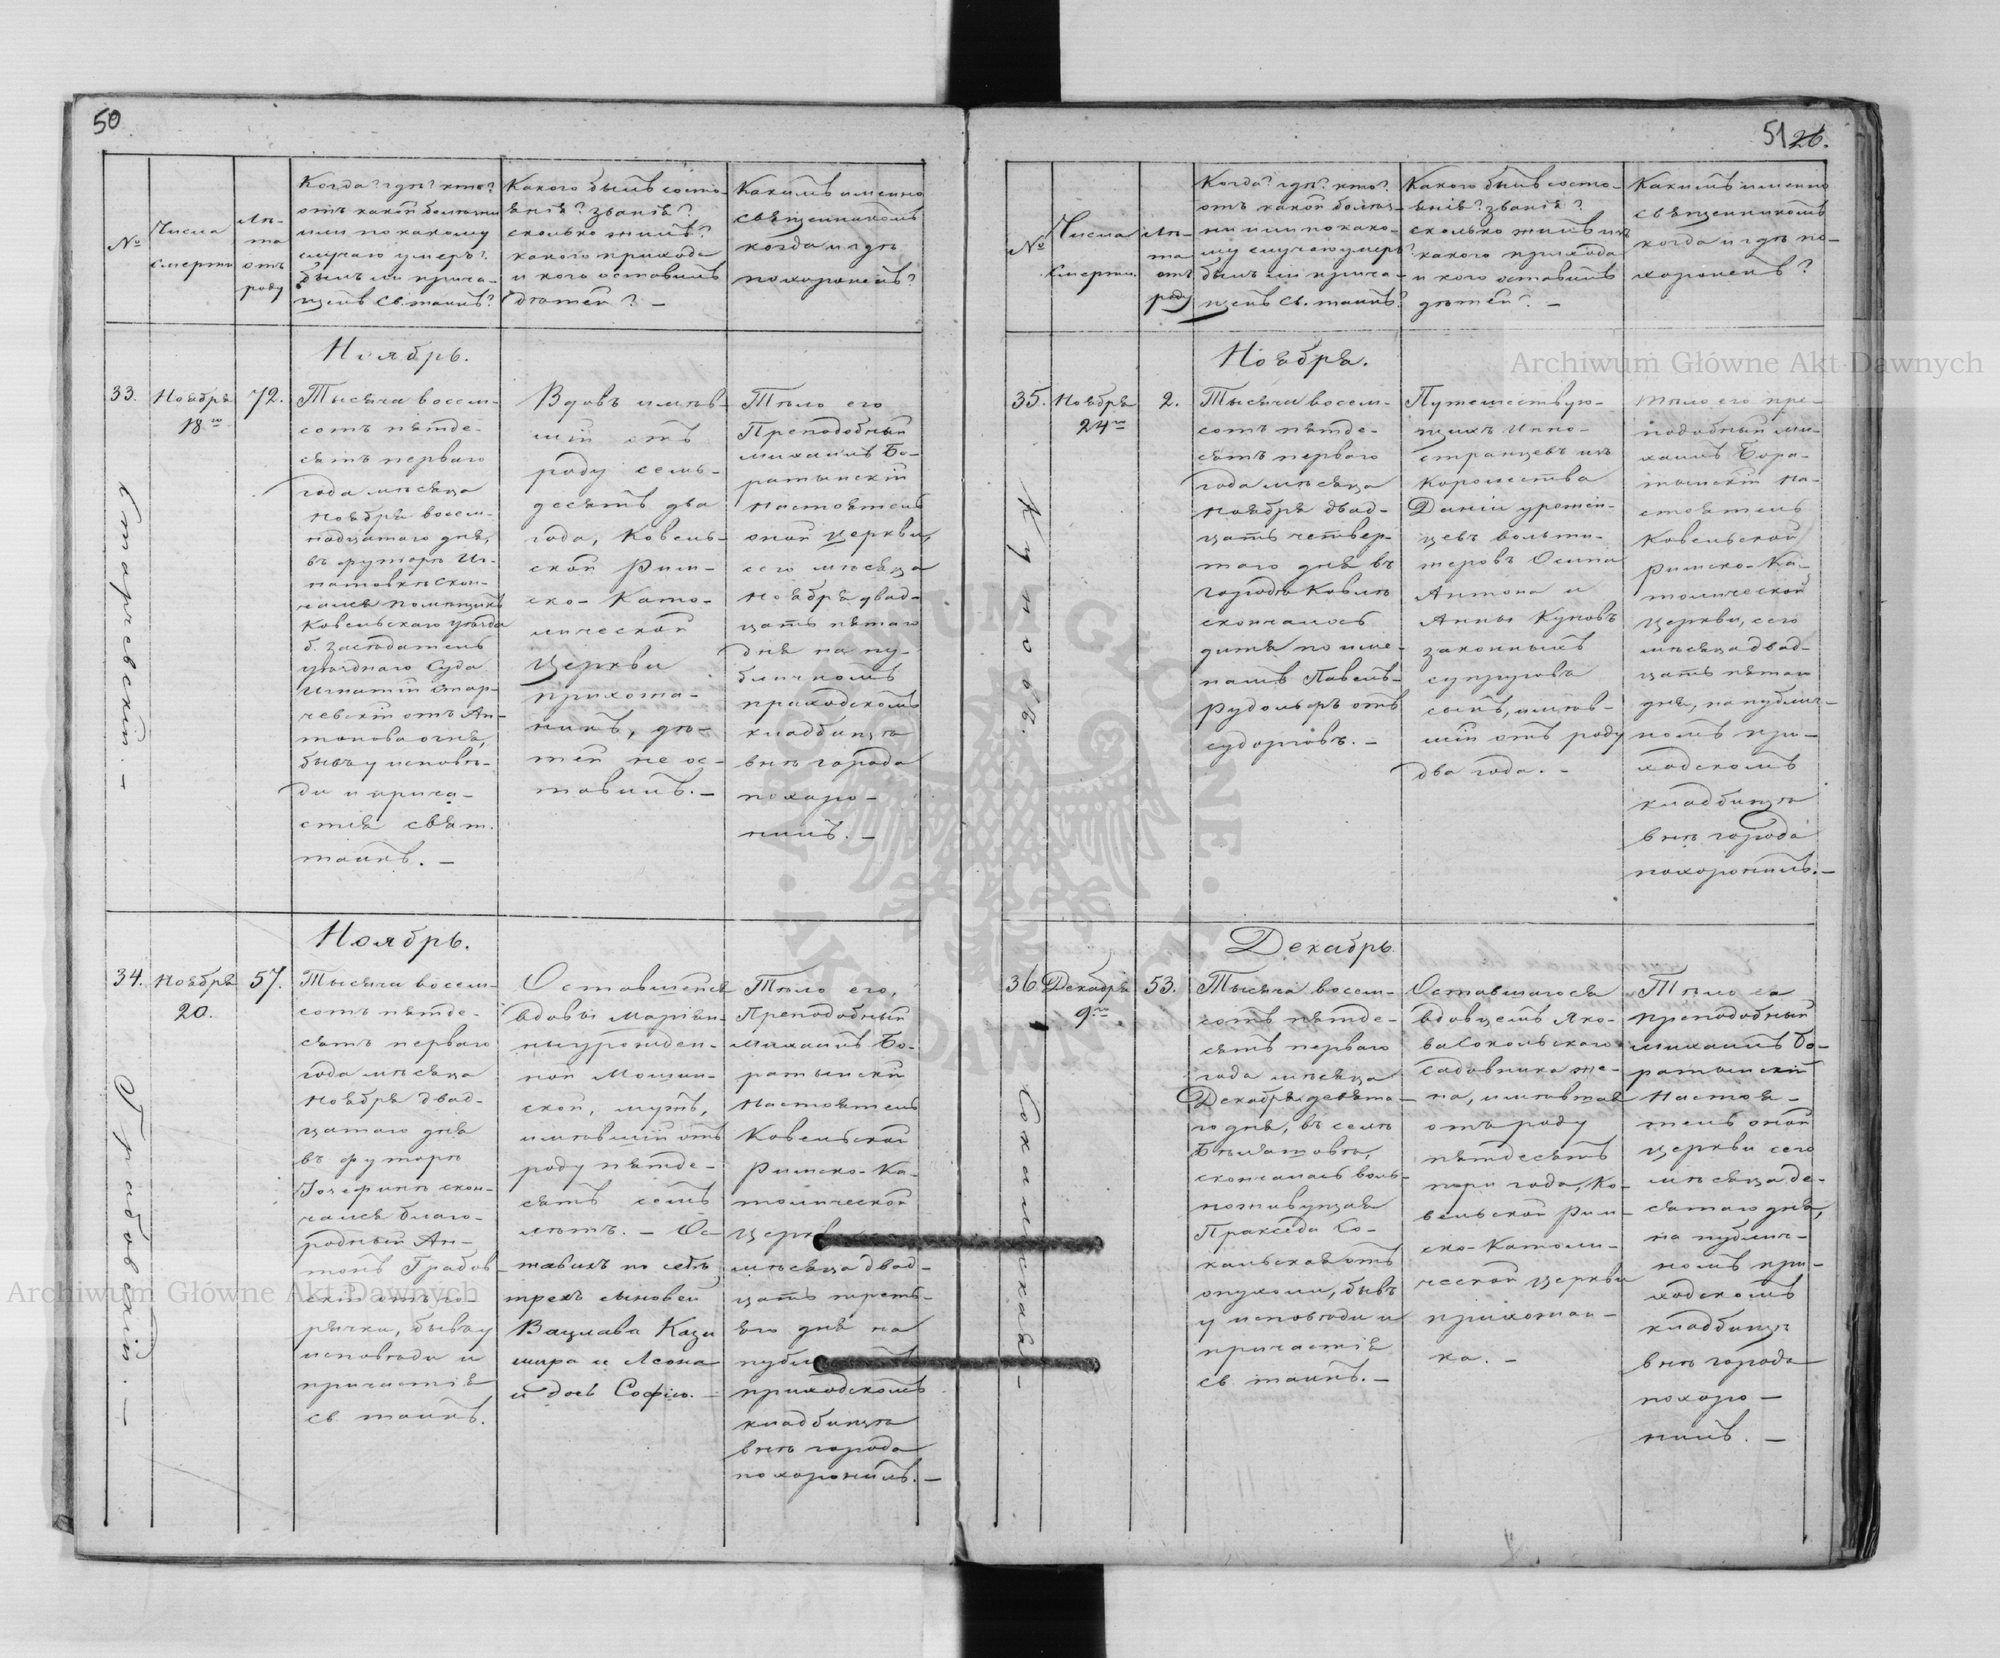 50
№
Числа
смерти
Лѣ-
та
отъ
роду
Когда? гдѣ? кто?
отъ какой болѣзни
или по какому
случаю умеръ?
былъ ли прича-
щенъ Св. таинъ?
Какого былъ состо-
янія? званія?
сколько жилъ?
какого прихода
и кого оставилъ
дѣтей? —
Какимъ именно
священникомъ
когда и гдѣ
похороненъ?
Ноябрь.
33.
Ноября
18го
72.
Старчевскій. —
Тысяча восем-
сотъ пятде-
сятъ перваго
года мѣсяца
Ноября восем-
надцатаго дня,
въ футорѣ Иг-
натовкѣ скон-
чался помѣщикъ
Ковельскаго уѣзда
б. Засѣдатель
уѣзднаго Суда
Игнатій Стар-
чевскій отъ Ан-
тонова огня,
бывъ у исповѣ-
ди и прича-
стія свят.
таинъ. —
Вдовъ имѣв-
шій отъ
роду семь-
десятъ два
года, Ковель-
ской Рим-
ско-Като-
лической
Церкви
прихожа-
нинъ, дѣ-
тей не ос-
тавилъ. —
Тѣло его
Преподобный
Михаилъ Бо-
ратынскій
Настоятель
оной церкви,
сего мѣсяца
Ноября двад-
цать пятаго
дня на пу-
бличномъ
приходскомъ
кладбищѣ
внѣ города
похоро-
нилъ. —
Ноябрь.
34.
Ноября
20.
57.
Грабовскій. —
Тысяча восем-
сотъ пятде-
сятъ перваго
года мѣсяца
Ноября двад-
цатаго дня
въ футорѣ
Іозефинѣ скон-
чался благо-
родный Ан-
тонъ Грабов-
скій отъ го-
рячки, бывъ у
исповѣди и
причастія
св. таинъ.
Оставшейся
вдовы Маріан-
ны урожден-
ной Мошин-
ской, мужъ,
имѣвшій отъ
роду пятде-
сятъ семь
лѣтъ. — Ос-
тавилъ по себѣ
трехъ сыновей
Вацлава Кази
мира и Леона
и дочь Софію. —
Тѣло его,
Преподобный
Михаилъ Бо-
ратынскій
Настоятель
Ковельской
Римско-Ка-
толической
Церкви
мѣсяца двад-
цать треть-
яго дня на
публ
приходскомъ
кладбищѣ
внѣ города
похоронилъ. —
51 26.
№
Числа
смерти.
Лѣ-
та
отъ
роду
Когда? гдѣ? кто?
отъ какой болѣз-
ни или по како-
му случаю умеръ?
былъ ли прича-
щенъ Св. таинъ?
Какого былъ состо-
янія? званія?
сколько жилъ изъ
какого прихода
и кого оставилъ
дѣтей? —
Какимъ именно
священникомъ
когда и гдѣ по-
хороненъ?
Archiwum Główne Akt Dawnych
Ноября.
35.
Ноября
24го
2.
Куновъ.
Тысяча восем-
сотъ пятде-
сятъ перваго
года мѣсяца
Ноября двад-
цать четвер-
таго дня въ
городѣ Ковлѣ
скончалось
дитя по име-
намъ Павелъ-
Рудольфъ отъ
судорговъ. —
Путешествую-
щихъ Ино-
странцевъ изъ
Королевства
Даніи урожен-
цевъ вольти-
жеровъ Осипа
Антона и
Анны Куновъ
законныхъ
супруговъ
сынъ, имѣв-
шій отъ роду
два года. —
Тѣло его пре-
подобный Ми-
хаилъ Бора-
тынскій На-
стоятель
Ковельской
Римско-Ка-
толической
Церкви, сего
мѣсяца двад-
цать пятаго
дня, на публич-
номъ при-
ходскомъ
кладбищѣ
внѣ города
похоронилъ. —
Декабрь.
36
Декабря
9го
53.
Сокальская —
Тысяча восем-
сотъ пятде-
сятъ перваго
года мѣсяца
Декабря девята-
го дня, въ селѣ
скончалась воль-
ноживущая
Праксeда Со-
кальская отъ
опухоли, бывъ
у исповѣди и
причастія
св. таинъ. —
Оставшагося
вдовцемъ Яко-
ва Сокольскаго
садовника же-
на, имѣвшая
отъ роду
пятдесятъ
три года, Ко-
вельской Рим-
ско-Католи-
ческой Церкви
прихожан-
ка. —
Тѣло ея
преподобный
Михаилъ Бо-
ратынскій
Настоя-
тель оной
церкви сего
мѣсяца де-
сятаго дня,
на публич-
номъ при-
ходскомъ
кладбищѣ
внѣ города
похоро-
нилъ. —
Archiwum Główne Akt Dawnych